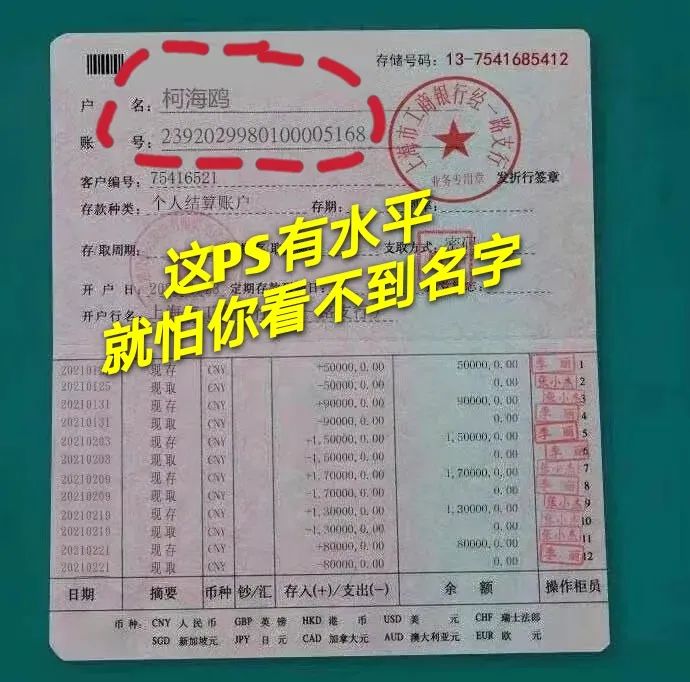 存储号码：13-7541685412
户 名：柯海鸥
账 号：2392029980100005168
上海市工商银行经一路支行
业务专用章
发折行签章
客户编号：75416521
存款种类：个人结算账户 存期：
存/取周期： 支取方式：密码
开 户 日：20 定期存款
开户行名：上海
这PS有水平
就怕你看不到名字
现存 CNY +50000,0.00 50000,0.00 李丽 1
20210125 现取 CNY -50000,0.00 0.00 张小杰 2
20210131 现存 CNY +90000,0.00 90000,0.00 张小杰 3
20210131 现取 CNY -90000,0.00 0.00 李丽 4
20210203 现存 CNY +1,50000,0.00 1,50000,0.00 李丽 5
20210203 现取 CNY 0.00 李丽 6
20210209 现存 CNY +1,70000,0.00 1,70000,0.00 张小杰 7
20210209 现取 CNY -1,70000,0.00 0.00 李丽 8
20210219 现存 CNY +1,30000,0.00 1,30000,0.00 张小杰 9
20210219 现取 CNY -1,30000,0.00 0.00 张小杰 10
20210221 现存 CNY +80000,0.00 80000,0.00 张小杰 11
20210221 现取 CNY -80000,0.00 0.00 李丽 12
日期 摘要 币种 钞/汇 存入(+)/支出(-) 余 额 操作柜员
币 种： CNY 人 民 币 GBP 英 镑 HKD 港 币 USD 美 元 CHF 瑞士法郎
SGD 新加坡元 JPY 日 元 CAD 加拿大元 AUD 澳大利亚元 EUR 欧 元